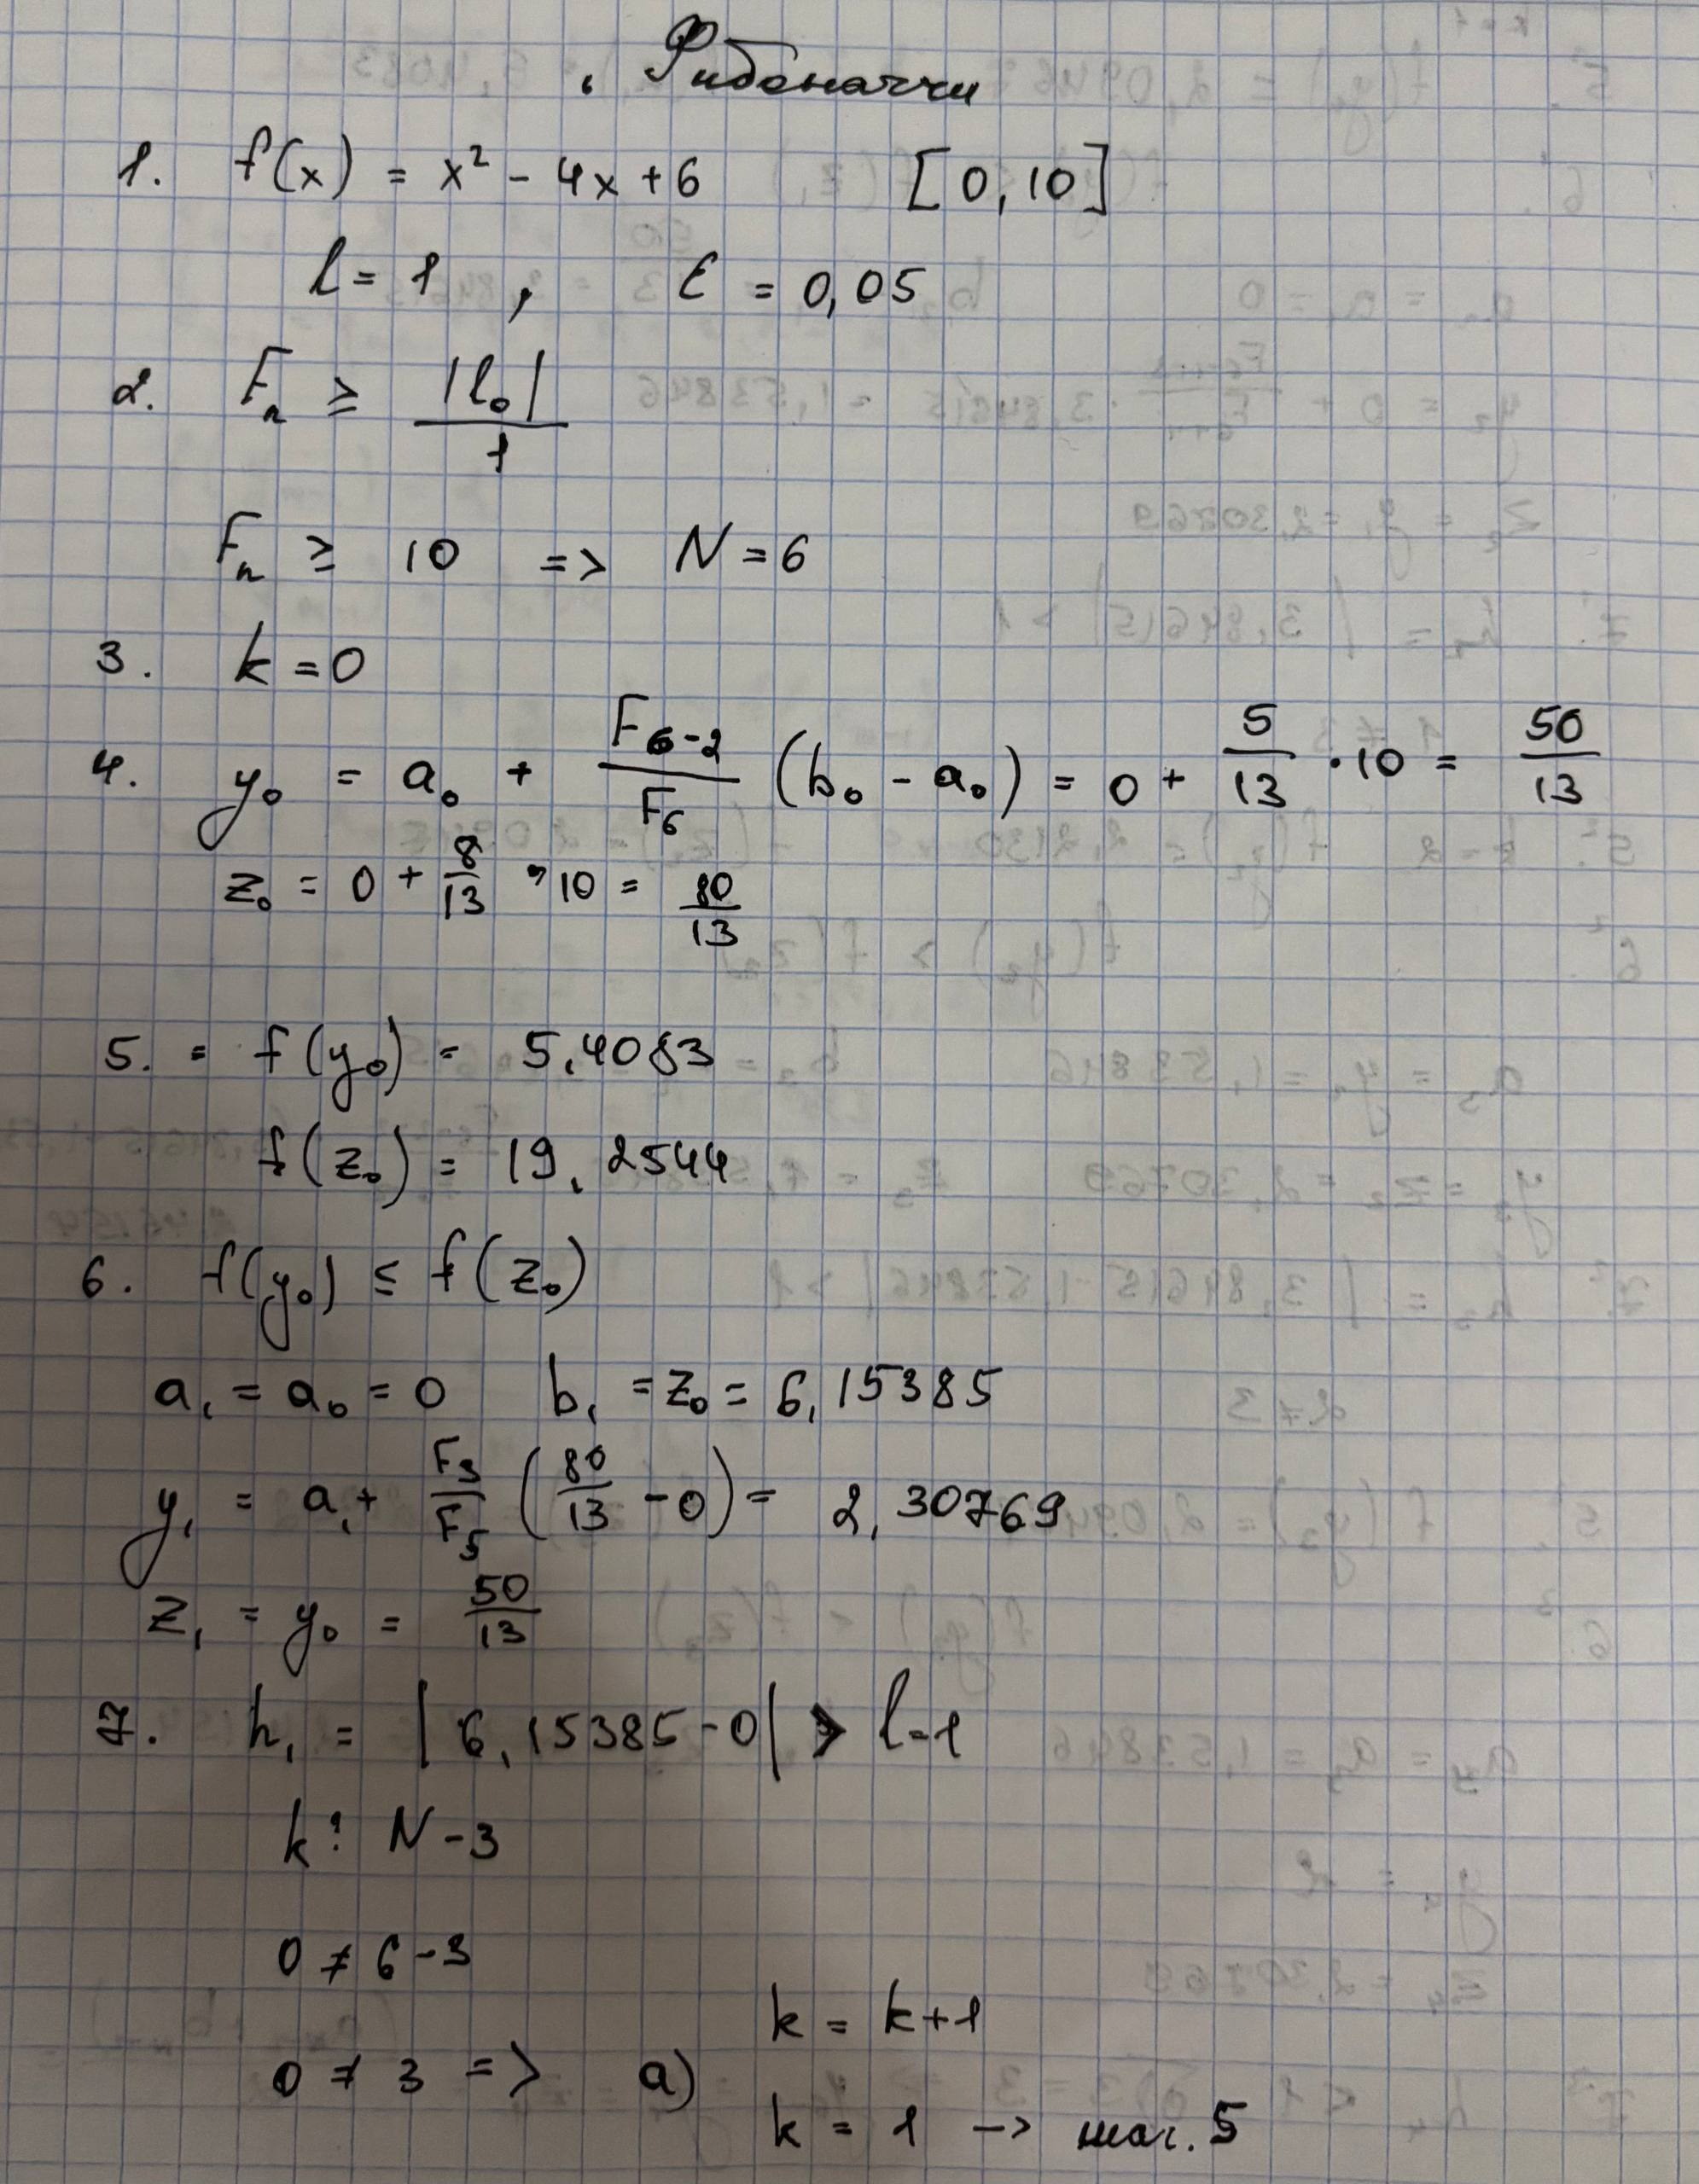 Фибоначчи
1. f(x) = x² - 4x + 6 [0, 10]
l = 1 , ε = 0,05
2. Fₙ ≥ |l₀| / 1
Fₙ ≥ 10 => N = 6
3. k = 0
4. y₀ = a₀ + F₆₋₂ / F₆ (b₀ - a₀) = 0 + 5/13 · 10 = 50/13
z₀ = 0 + 8/13 · 10 = 80/13
5. = f(y₀) = 5,4083
f(z₀) = 19,2544
6. f(y₀) ≤ f(z₀)
a₁ = a₀ = 0 b₁ = z₀ = 6,15385
y₁ = a₁ + F₃/F₅ (80/13 - 0) = 2,30769
z₁ = y₀ = 50/13
7. h₁ = |6,15385 - 0| > l = 1
k : N - 3
0 ≠ 6 - 3
0 ≠ 3 => а) k = k + 1
k = 1 -> шаг. 5